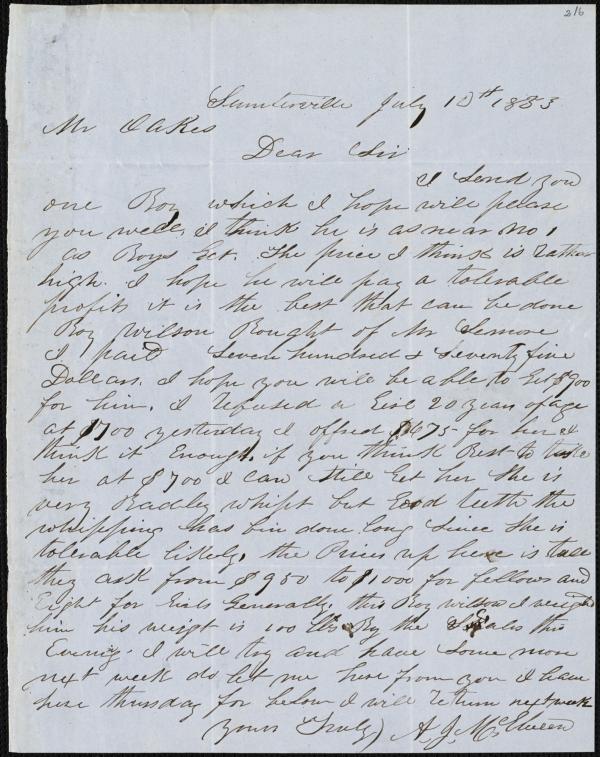 216
Sumterville July 10th 1853
Mr Oakes
Dear Sir
I Send you
one Boy which I hope will please
you well, I think he is as near No 1
as Boys Get. The price I think is Rather
high. I hope he will pay a tolerable
profits it is the best that can be done
Boy Wilson Bought of Mr Semore
I paid Seven hundred & Seventy five
Dollars. I hope you will be able to Get $900
for him. I Refused a Girl 20 years of age
at $700 yesterday I offred $675 for her I
think it Enough, if you think Best to take
her at $700 I can still Get her She is
very Badley whipt but Good teeth the
whipping has bin done long Since She is
tolerable likely, the Prices up here is tall
they ask from $950 to $1000 for fellows and
Eight for Girls Generally. this Boy Wilson I weighed
him his weight is 100 lbs By the Scales this
Evening. I will try and have Some more
next week do let me hear from you I leave
here thursday for below I will Return next week
yours Truly A. J. McElveen